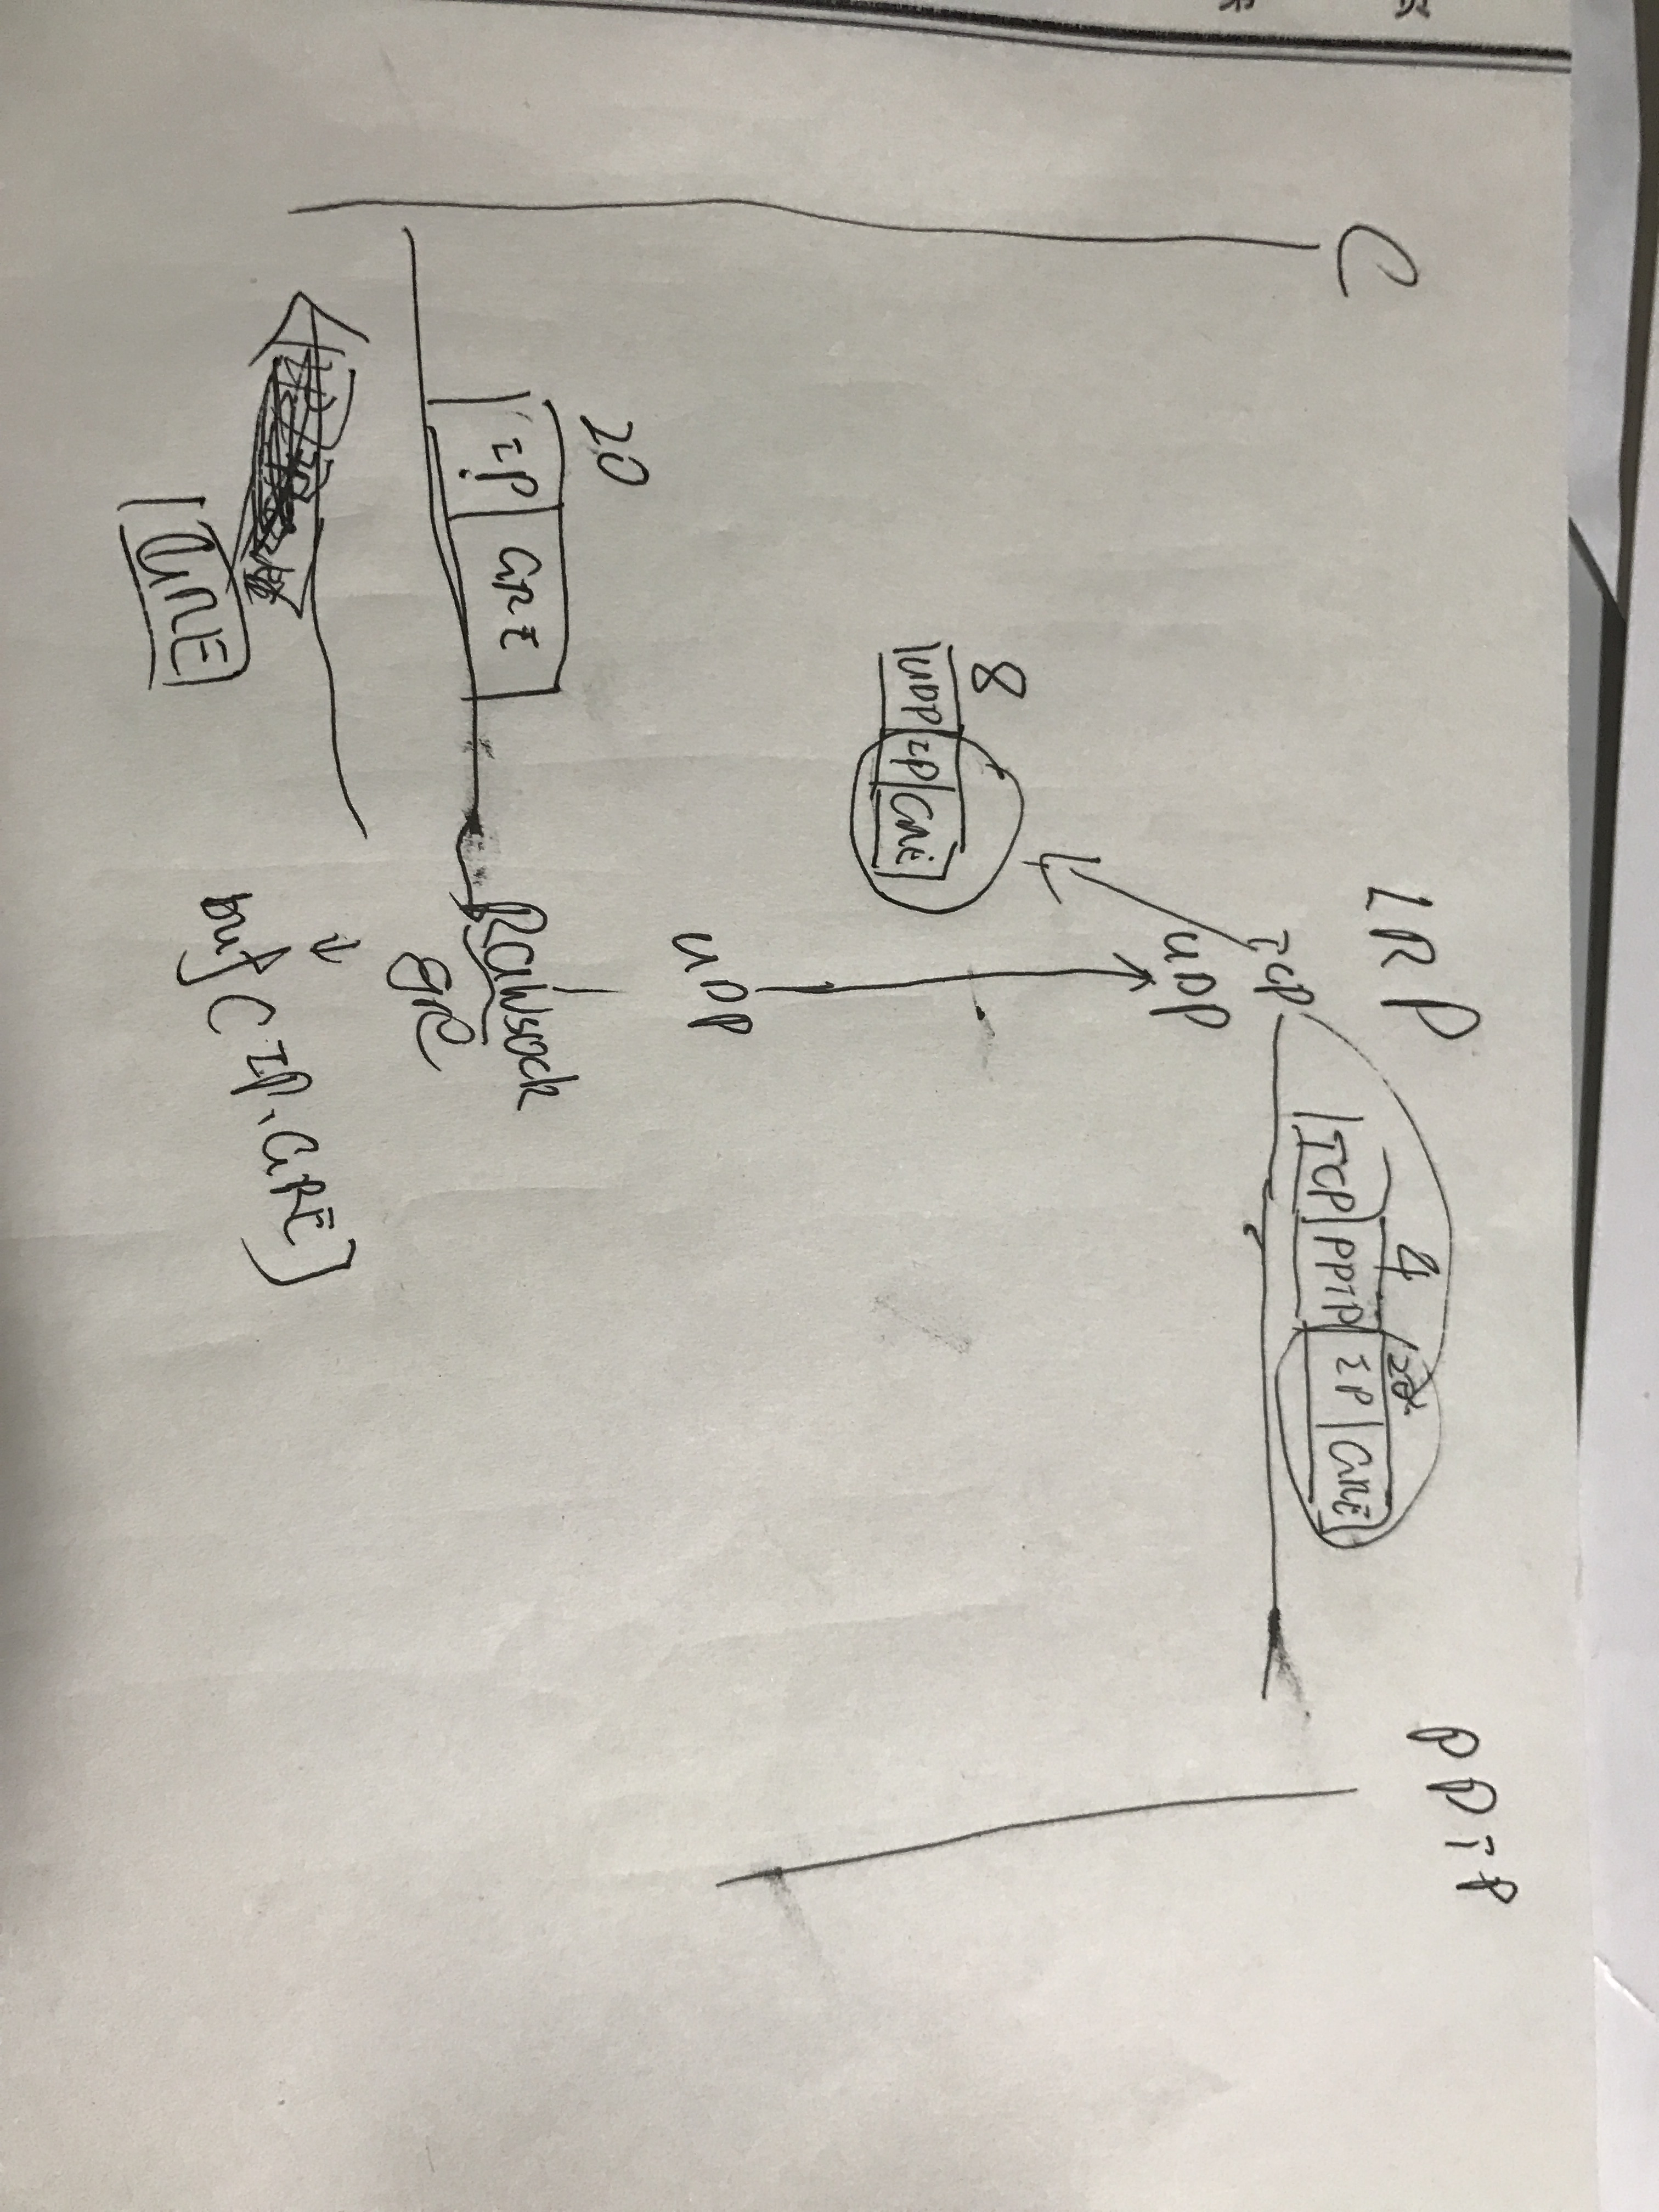 C LRP PPTP
4 20
TCP PPTP IP GRE
TCP
UDP
8
UDP IP GRE
UDP
20
IP GRE
Rawsock
gre
buf (IP, GRE)
GRE